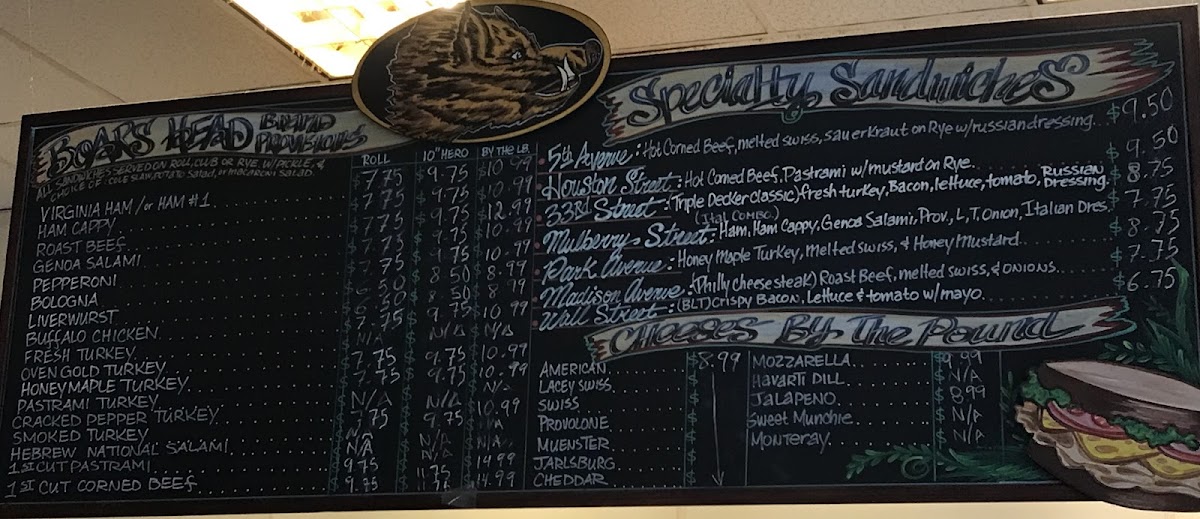 BOAR'S HEAD BRAND PROVISIONS
ALL SANDWICHES SERVED ON ROLL, CLUB OR RYE. W/PICKLE, &
CHOICE OF: COLE SLAW, POTATO SALAD, or MACARONI SALAD.
VIRGINIA HAM / or HAM #1
HAM CAPPY
ROAST BEEF
GENOA SALAMI
PEPPERONI
BOLOGNA
LIVERWURST
BUFFALO CHICKEN
FRESH TURKEY
OVEN GOLD TURKEY
HONEYMAPLE TURKEY
PASTRAMI TURKEY
CRACKED PEPPER TURKEY
SMOKED TURKEY
HEBREW NATIONAL SALAMI
1ST CUT PASTRAMI
1ST CUT CORNED BEEF
ROLL 10" HERO BY THE LB.
$7.75 $9.75 $10.99
$7.75 $9.75 $10.99
$7.75 $9.75 $12.99
$7.75 $9.75 $10.99
$7.75 $9.75 $10.99
$6.50 $8.50 $8.99
$6.50 $8.50 $8.79
$7.75 $9.75 $10.99
N/A N/A N/A
$7.75 $9.75 $10.99
$7.75 $9.75 $10.99
N/A N/A N/A
$7.75 $9.75 $10.99
N/A N/A N/A
$9.75 $11.75 $14.99
$9.75 $11.75 $14.99
Specialty Sandwiches
5th Avenue: Hot Corned Beef, melted swiss, sauerkraut on Rye w/russian dressing.. $9.50
Houston Street: Hot Corned Beef, Pastrami w/mustard on Rye $9.50
33RD Street: (Triple Decker Classic) fresh turkey, Bacon, lettuce, tomato, RUSSIAN DRESSING. $8.75
(Ital COMBO.)
Mulberry Street: Ham, Ham Cappy, Genoa Salami, Prov., L, T, Onion, Italian Dres. $7.75
Park Avenue: Honey Maple Turkey, Melted Swiss, & Honey Mustard $8.75
Madison Avenue: (Philly cheese steak) Roast Beef, melted swiss, & ONIONS $7.75
Wall Street: (BLT) Crispy Bacon, Lettuce & tomato w/mayo $6.75
Cheeses By The Pound
AMERICAN $8.99
LACEY SWISS
SWISS
PROVOLONE
MUENSTER
JARLSBURG
CHEDDAR
MOZZARELLA $9.99
HAVARTI DILL $N/A
JALAPENO $8.99
Sweet Munchie $N/A
Monteray $N/A